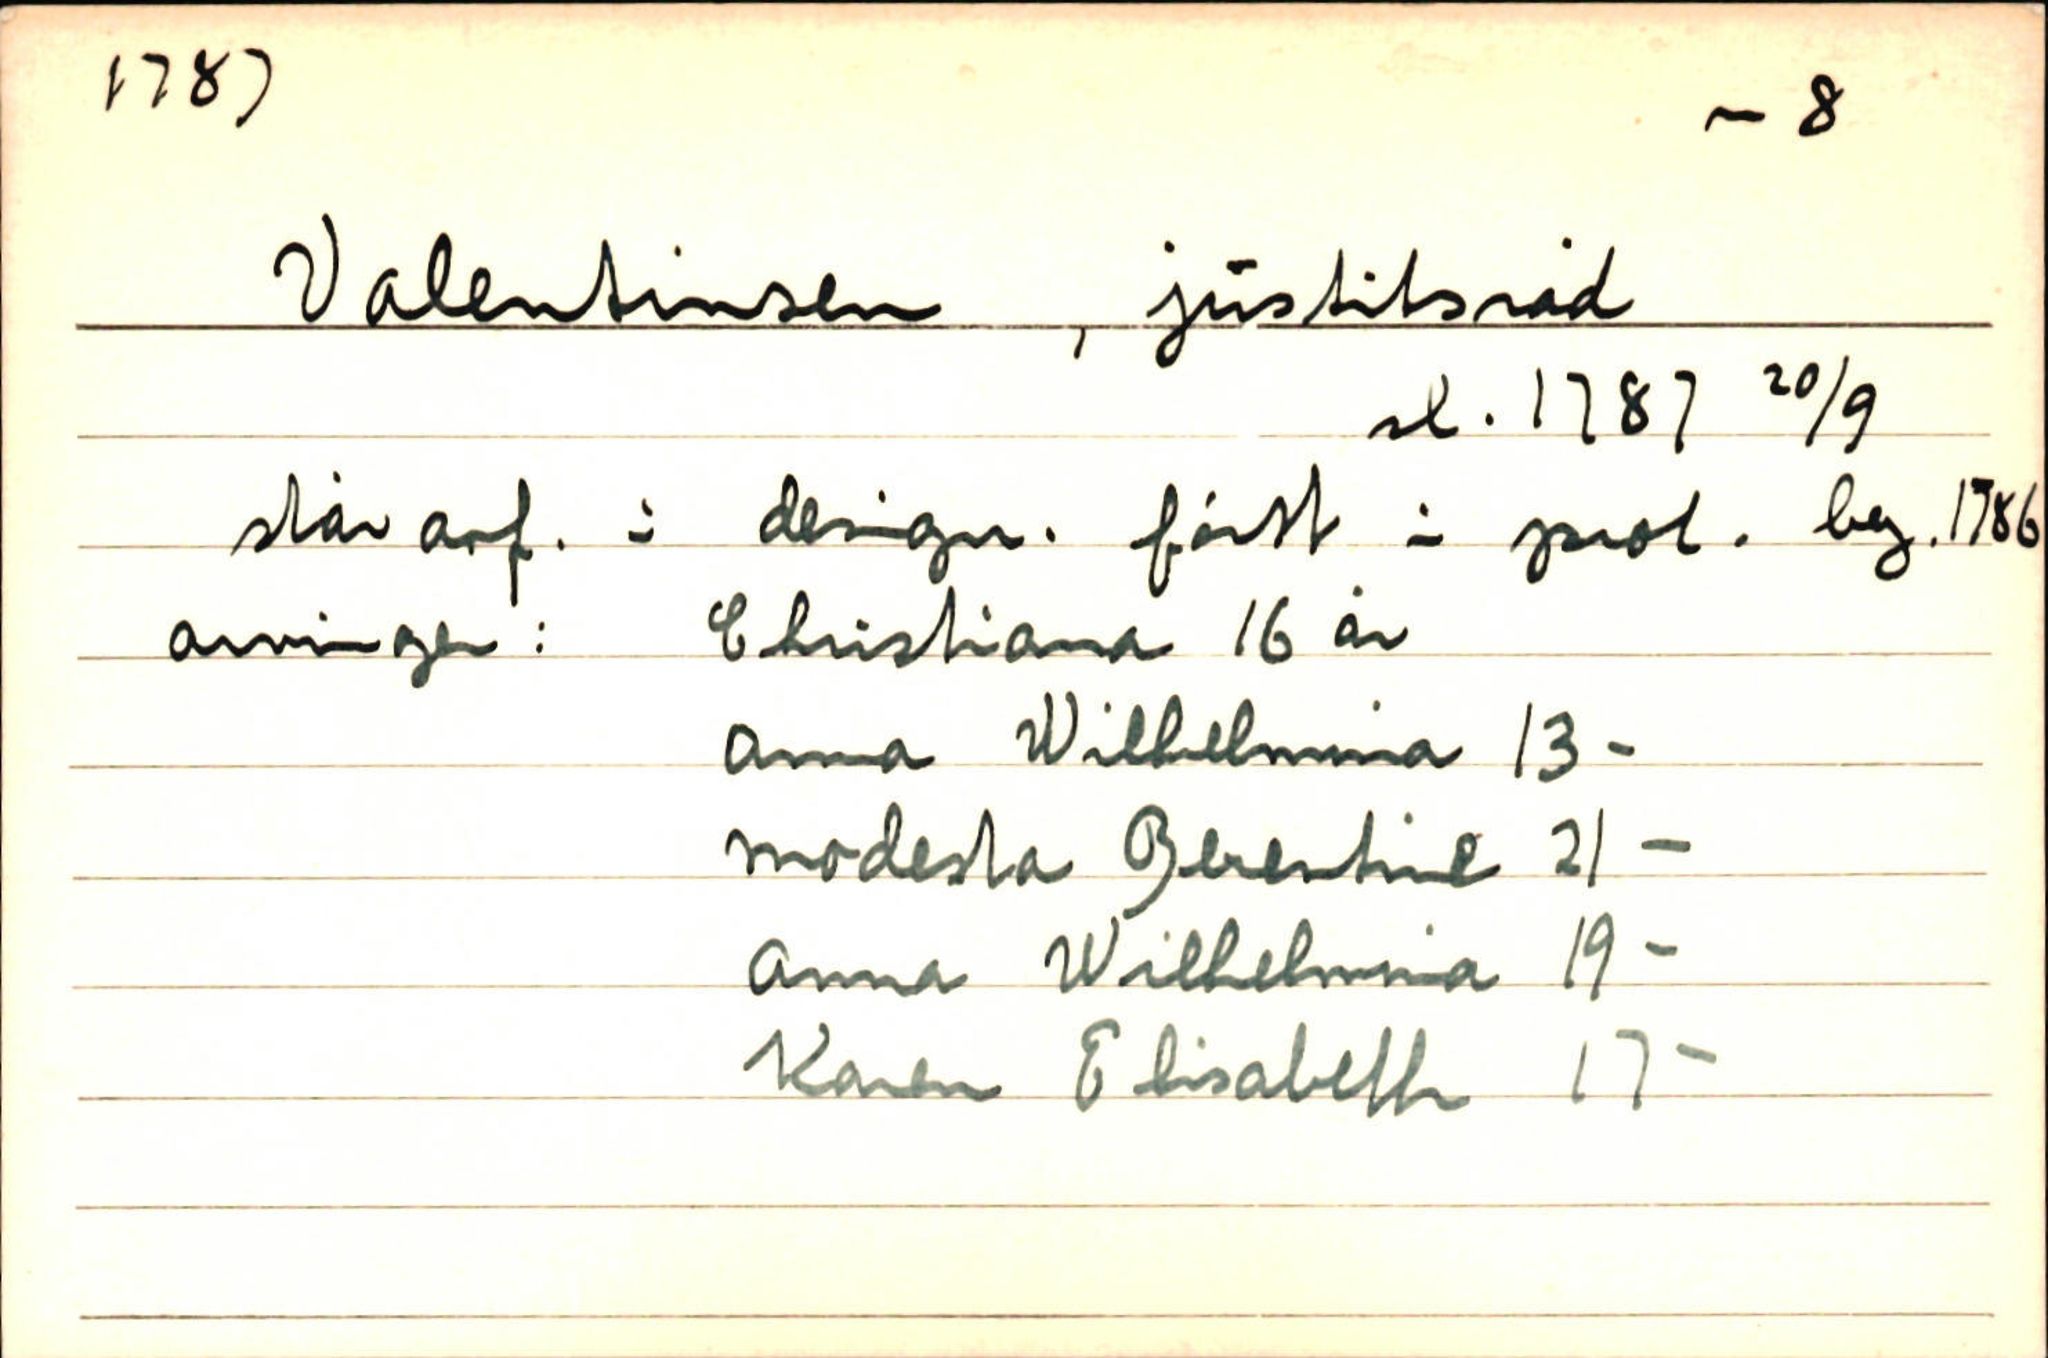 1787
~ 8
Valentinsen , justitsråd
sl. 1787 20/9
står anf. i design. først i prot. beg. 1786
arvinger : Christiana 16 år
Anna Wilhelmina 13 -
Modesta Berentine 21 -
Anna Wilhelmina 19 -
Karen Elisabeth 17 -